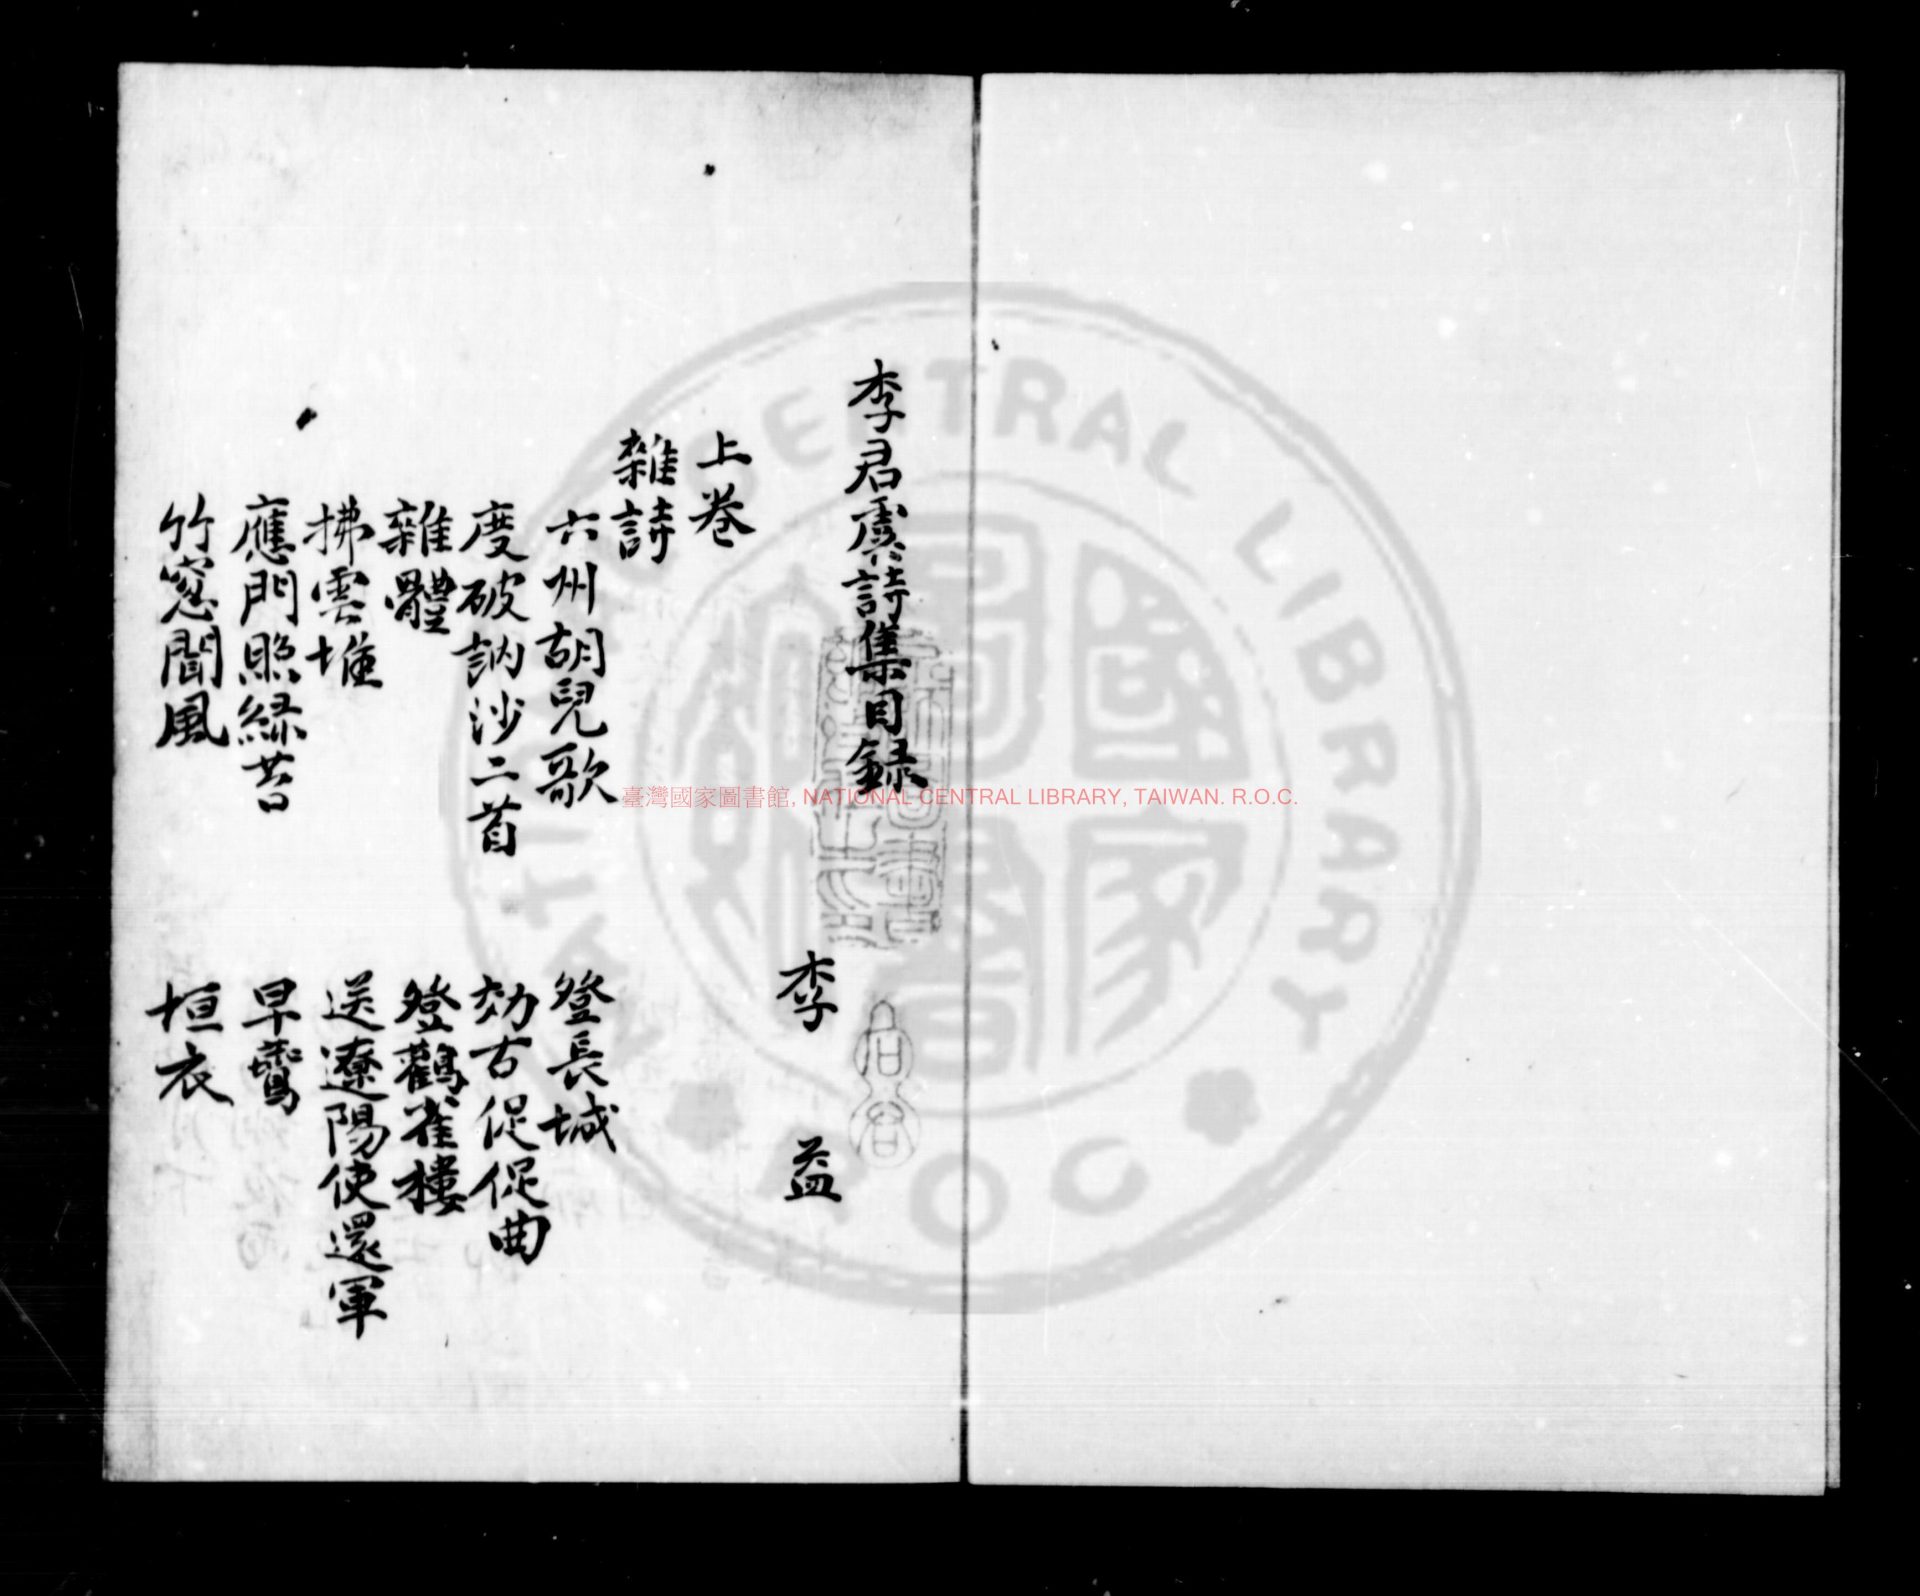 李君虞詩集目録
李益
上卷
雜詩
六州胡兒歌 登長城
度破訥沙二首 効古促促曲
雜體 登鸛雀樓
拂雲堆 送遼陽使還軍
應門照緑苔 早鶯
竹窓聞風 垣衣
臺灣國家圖書館, NATIONAL CENTRAL LIBRARY, TAIWAN. R.O.C.
NATIONAL CENTRAL LIBRARY
R.O.C
國家圖書館